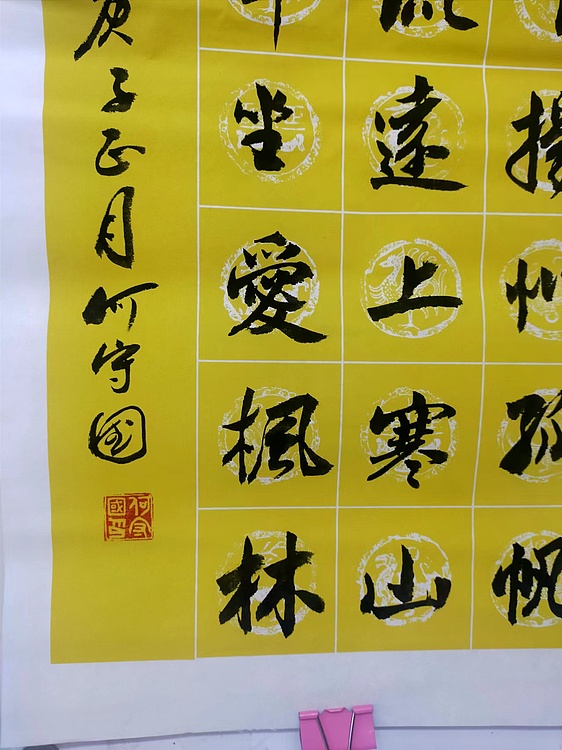 揚州孤帆
流遠上寒山
車坐愛楓林
庚子正月何守國
何守國印